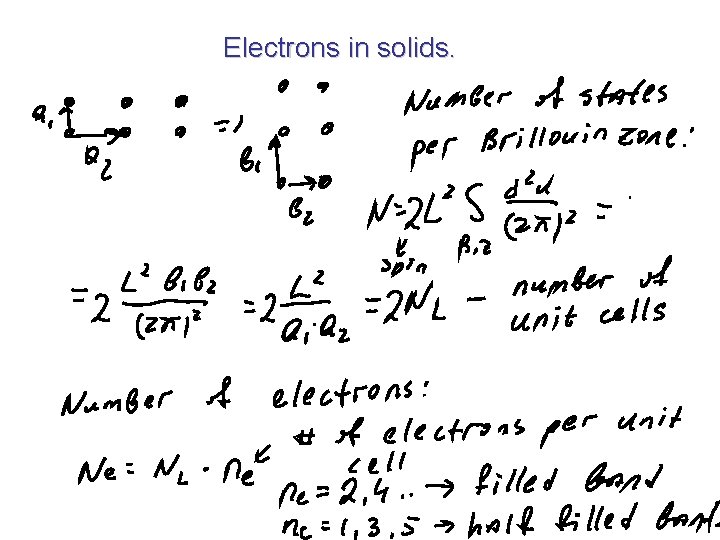 Electrons in solids.
a₁
a₂
=>
b₁
b₂
Number of states
per Brillouin zone:
N=2L² ∫ d²k/(2π)² =
spin
B.z
=2 L² b₁b₂/(2π)² =2 L²/a₁·a₂ =2N_L – number of unit cells
Number of electrons:
# of electrons per unit cell
Ne = N_L · ne
ne = 2,4.. → filled band
ne = 1,3,5 → half filled band